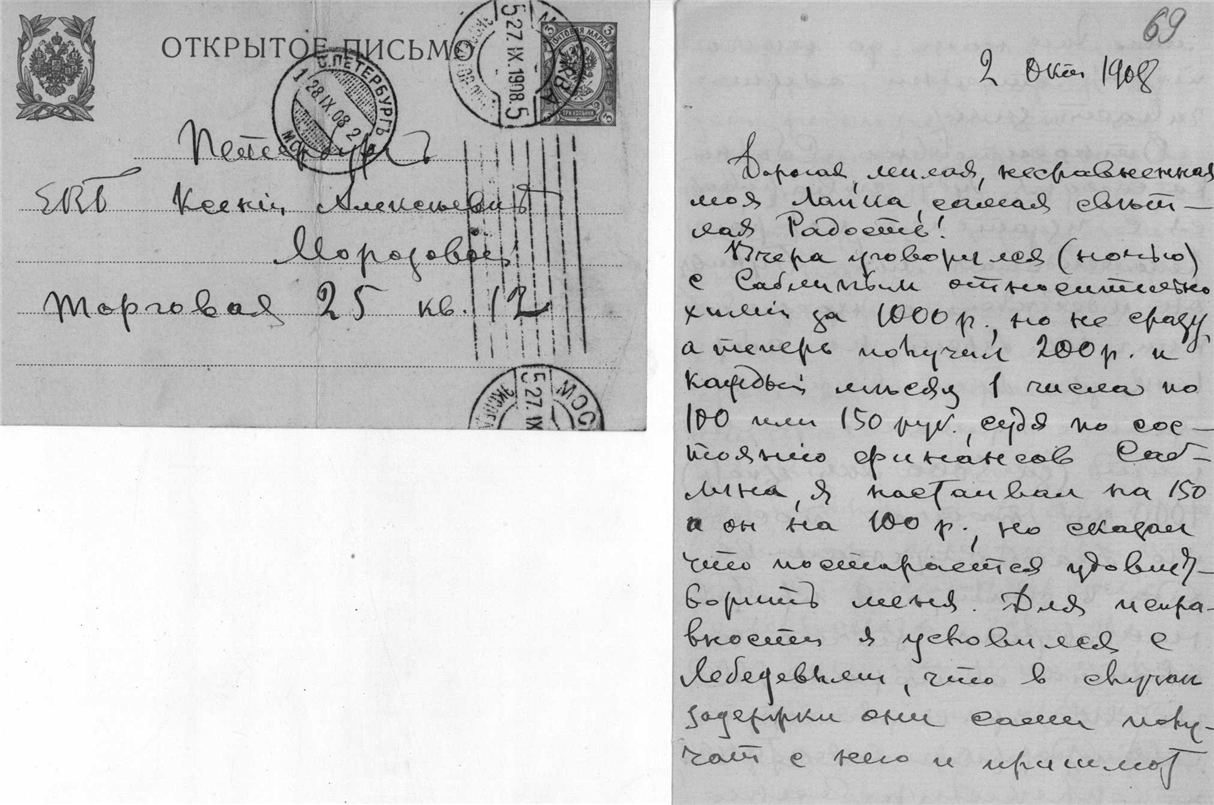 ОТКРЫТОЕ ПИСЬМО
ПОЧТОВАЯ МАРКА
3
3
МОСКВА
5 27 IX 1908. 5
С.ПЕТЕРБУРГЪ
1 28 IX. 08 2
Петербургъ
ЕВБ Ксеніи Алексѣевнѣ
Морозовой
Торговая 25 кв. 12
МОС
5 27. IX
69
2 Окт 1908
Дорогая, милая, несравненная
моя Лайка, самая свѣт-
лая Радость!
Вчера уговорился (ночью)
с Саблиным относительно
химии за 1000 р., но не сразу,
а теперь получил 200 р. и
каждый мѣсяц 1 числа по
100 или 150 руб., судя по сос-
тоянію финансов Саб-
лина, я настаивал на 150
а он на 100 р., но сказал
что постарается удовлет-
ворить меня. Для испра-
вности я условился с
Лебедевым, что в случаѣ
задержки они сами полу-
чат с него и пришлют